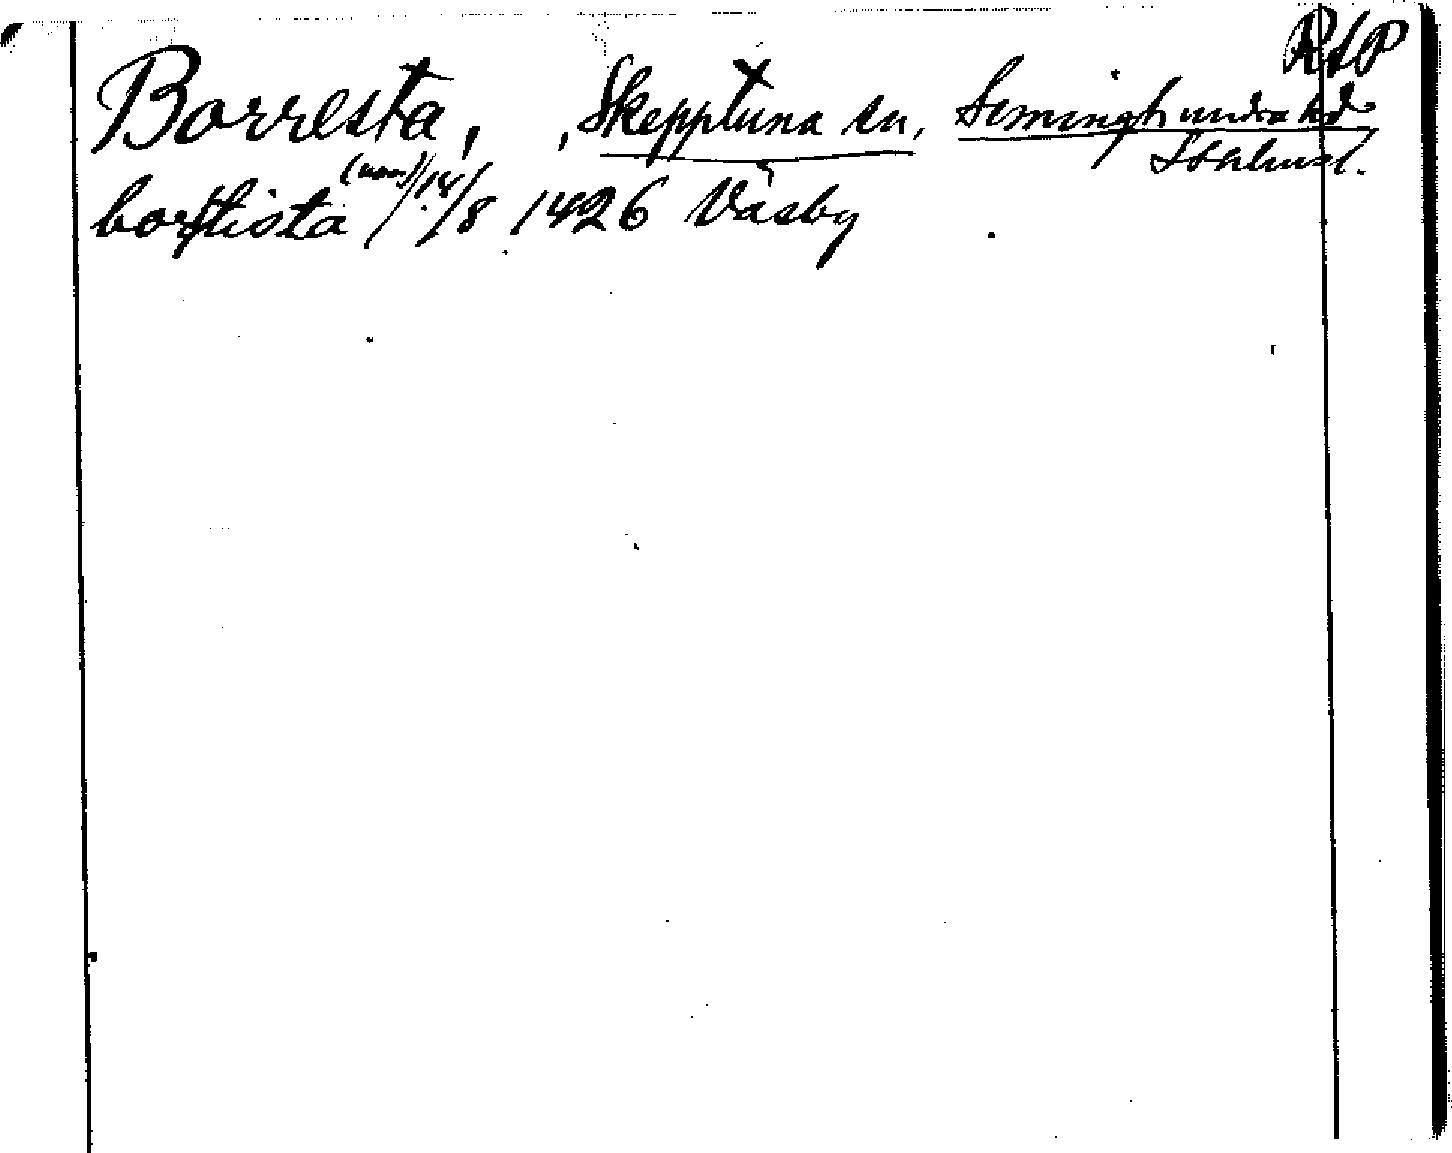 RAP
Borresta, , Skepptuna sn, Seminghundra hd
Sthlmsl.
borstista (nom.) 14/8 1426 Väsby